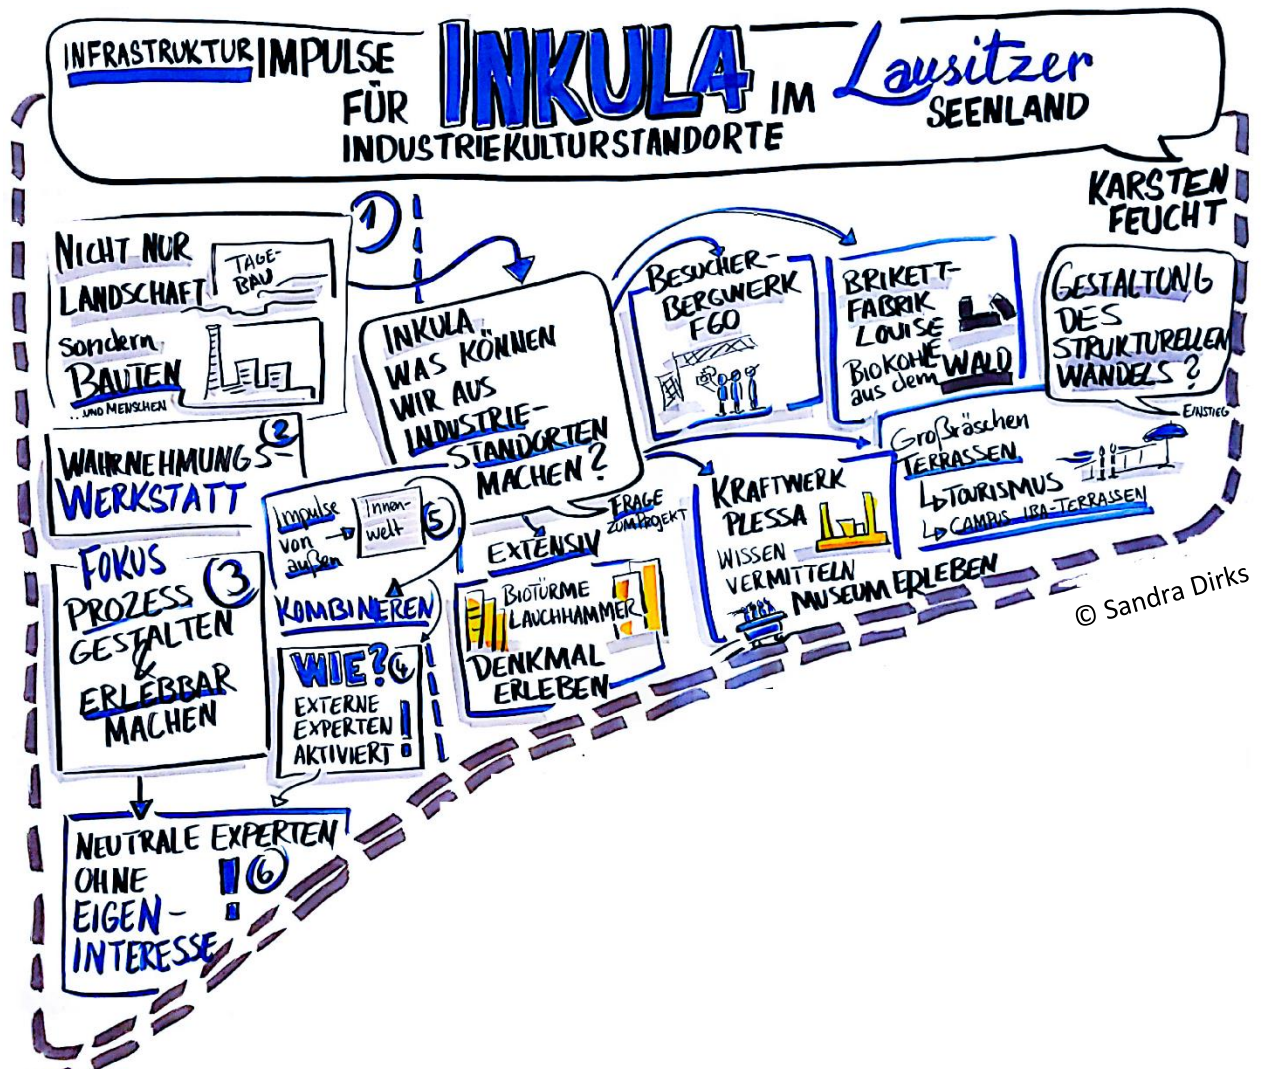 INFRASTRUKTUR IMPULSE
FÜR INKULA IM Lausitzer
SEENLAND
INDUSTRIEKULTURSTANDORTE
KARSTEN
FEUCHT
1
NICHT NUR
LANDSCHAFT
TAGE-
BAU
sondern
BAUTEN
...UND MENSCHEN
2
WAHRNEHMUNGS-
WERKSTATT
FOKUS
3
PROZESS
GESTALTEN
&
ERLEBBAR
MACHEN
Impulse
von
außen
Innen-
welt
5
KOMBINIEREN
WIE? 4
EXTERNE
EXPERTEN
AKTIVIERT !
NEUTRALE EXPERTEN
OHNE ! 6
EIGEN-
INTERESSE
INKULA
WAS KÖNNEN
WIR AUS
INDUSTRIE-
STANDORTEN
MACHEN?
FRAGE
ZUM PROJEKT
EXTENSIV
BIOTÜRME
LAUCHHAMMER
DENKMAL
ERLEBEN
BESUCHER-
BERGWERK
F60
BRIKETT-
FABRIK
LOUISE
BIOKOHLE
aus dem WALD
GESTALTUNG
DES
STRUKTURELLEN
WANDELS?
EINSTIEG
Großräschen
TERRASSEN
↳ TOURISMUS
↳ CAMPUS IBA-TERRASSEN
KRAFTWERK
PLESSA
WISSEN
VERMITTELN
MUSEUM ERLEBEN
© Sandra Dirks